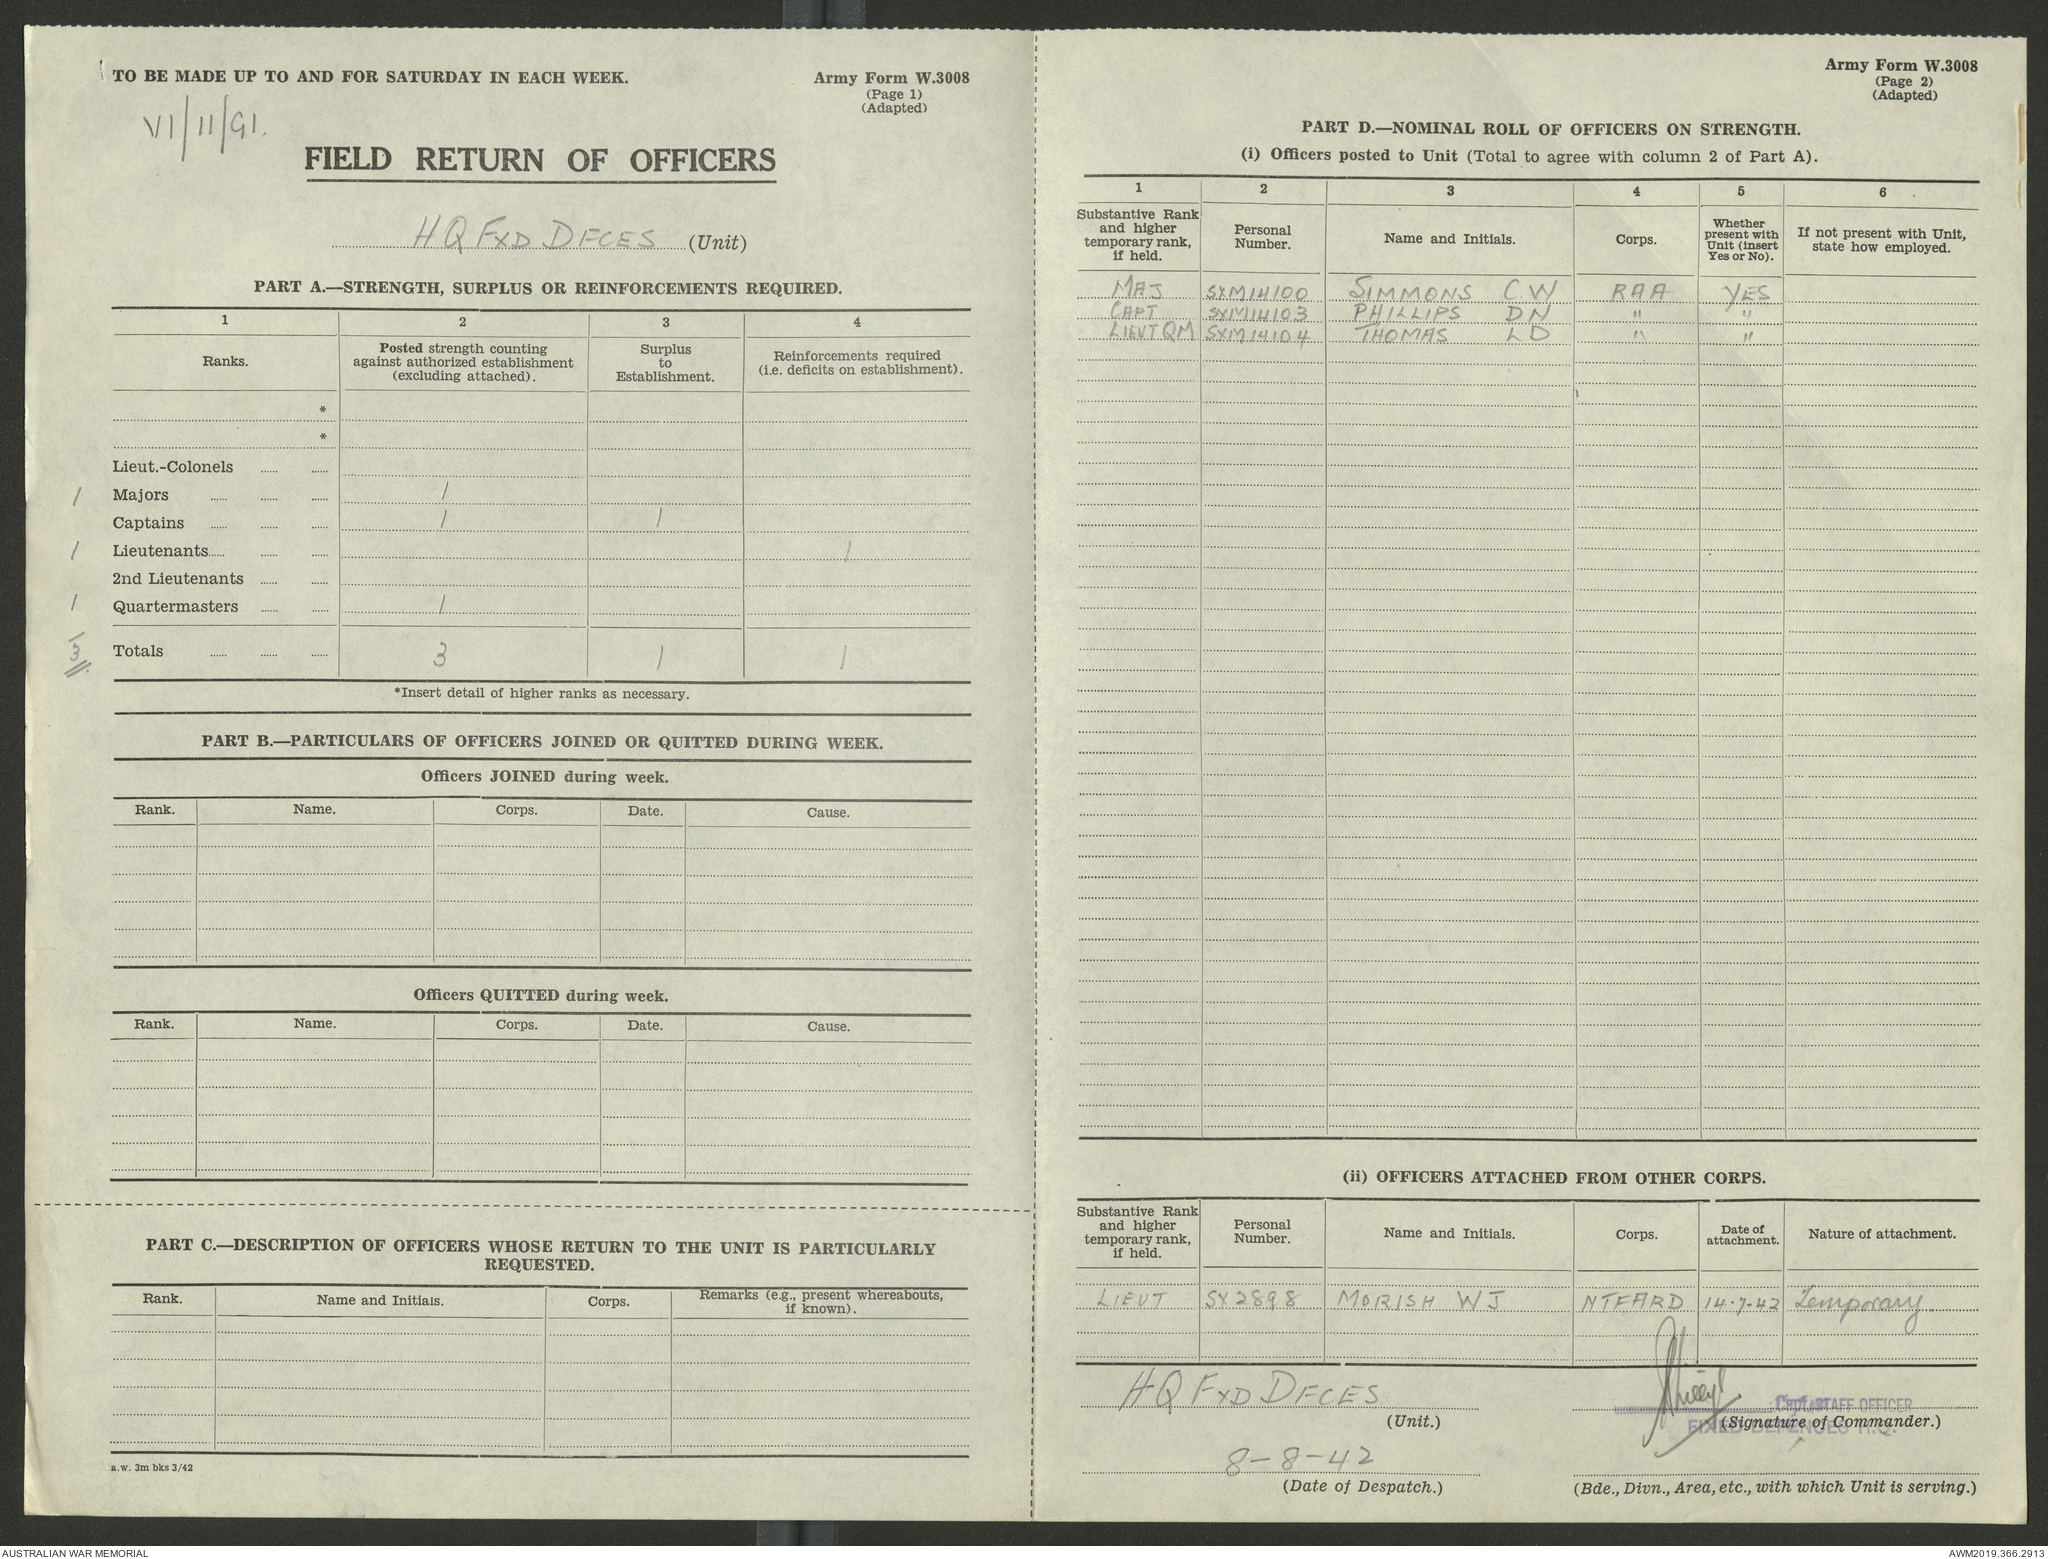 TO BE MADE UP TO AND FOR SATURDAY IN EACH WEEK.
Army Form W.3008
(Page 1)
(Adapted)
VI/11/G1.
FIELD RETURN OF OFFICERS
HQ FXD DFCES (Unit)
PART A.—STRENGTH, SURPLUS OR REINFORCEMENTS REQUIRED.
1 2 3 4
Ranks. Posted strength counting against authorized establishment (excluding attached). Surplus to Establishment. Reinforcements required (i.e. deficits on establishment).
*
*
Lieut.-Colonels
1 Majors 1
Captains 1 1
1 Lieutenants 1
2nd Lieutenants
1 Quartermasters 1
3 Totals 3 1 1
*Insert detail of higher ranks as necessary.
PART B.—PARTICULARS OF OFFICERS JOINED OR QUITTED DURING WEEK.
Officers JOINED during week.
Rank. Name. Corps. Date. Cause.
Officers QUITTED during week.
Rank. Name. Corps. Date. Cause.
PART C.—DESCRIPTION OF OFFICERS WHOSE RETURN TO THE UNIT IS PARTICULARLY
REQUESTED.
Rank. Name and Initials. Corps. Remarks (e.g., present whereabouts, if known).
a.w. 3m bks 3/42
Army Form W.3008
(Page 2)
(Adapted)
PART D.—NOMINAL ROLL OF OFFICERS ON STRENGTH.
(i) Officers posted to Unit (Total to agree with column 2 of Part A).
1 2 3 4 5 6
Substantive Rank and higher temporary rank, if held. Personal Number. Name and Initials. Corps. Whether present with Unit (insert Yes or No). If not present with Unit, state how employed.
MAJ SXM14100 SIMMONS CW RAA YES
CAPT SXM14103 PHILLIPS DN " "
LIEUT QM SXM14104 THOMAS LD " "
(ii) OFFICERS ATTACHED FROM OTHER CORPS.
Substantive Rank and higher temporary rank, if held. Personal Number. Name and Initials. Corps. Date of attachment. Nature of attachment.
LIEUT SX2898 MORISH WJ NTFARD 14-7-42 Temporary
HQ FXD DFCES
(Unit.)
Capt. STAFF OFFICER
FIXED DEFENCES H.Q.
(Signature of Commander.)
8-8-42
(Date of Despatch.)
(Bde., Divn., Area, etc., with which Unit is serving.)
AUSTRALIAN WAR MEMORIAL
AWM2019.366.2913